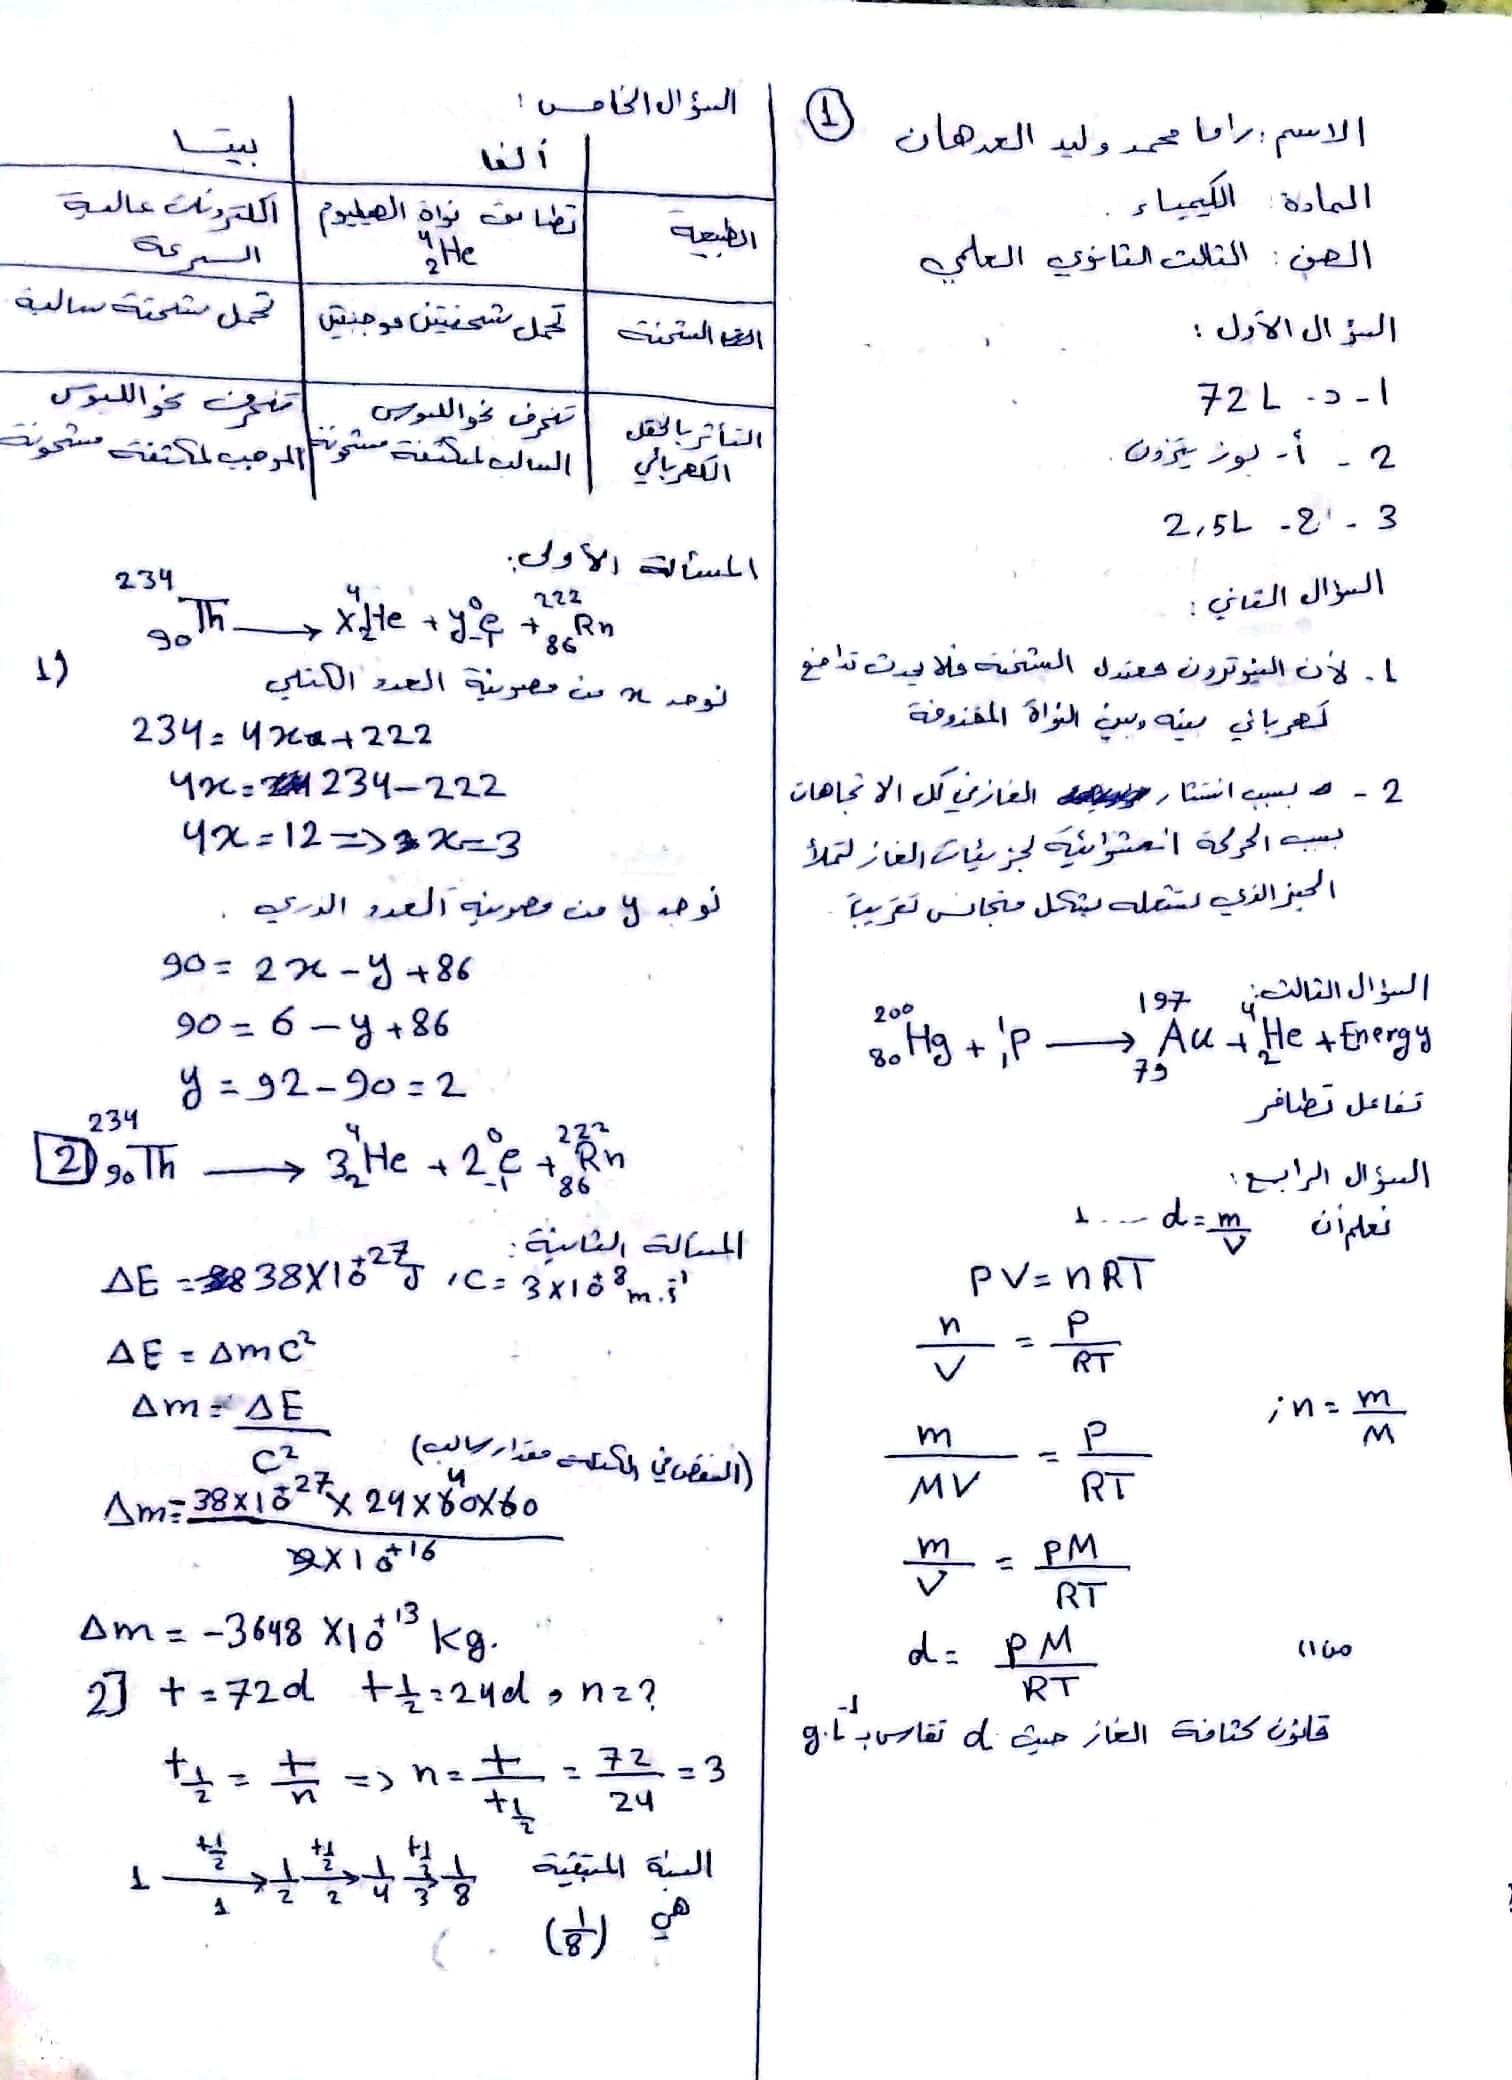 1
الاسم: راما محمد وليد العدهان
المادة: الكيمياء.
الصف: الثالث الثانوي العلمي
السؤال الأول:
1 - د - 72 L
2 - أ - بوزيترون.
3 - ج - 2,5L
السؤال الثاني:
1. لأن النيوترون معتدل الشحنة فلا يحدث تدافع
كهربائي بينه وبين النواة المقذوفة
2 - بسبب انتشار الغاز في كل الاتجاهات
بسبب الحركة العشوائية لجزيئات الغاز لتملأ
الحيز الذي تشغله بشكل متجانس تقريباً.
السؤال الثالث:
²⁰⁰₈₀Hg + ¹₁P → ¹⁹⁷₇₉Au + ⁴₂He + Energy
تفاعل تطافر
السؤال الرابع:
نعلم أن d = m/V .... 1
PV = nRT
n/V = P/RT
m/MV = P/RT ; n = m/M
m/V = PM/RT
من 1) d = PM/RT
قانون كثافة الغاز حيث d تقاس بـ g.L⁻¹
السؤال الخامس:
ألفا بيتا
الطبيعة تطابق نواة الهيليوم ⁴₂He الكترونات عالية السرعة
الشحنة تحمل شحنتين موجبتين تحمل شحنة سالبة
التأثر بالحقل الكهربائي تنحرف نحو اللبوس السالب لمكثفة مشحونة تنحرف نحو اللبوس الموجب لمكثفة مشحونة
المسألة الأولى:
²³⁴₉₀Th → x⁴₂He + y⁰₋₁e + ²²²₈₆Rn
1) نوجد x من مصونية العدد الكتلي
234 = 4x + 222
4x = 234 - 222
4x = 12 => x = 3
نوجد y من مصونية العدد الذري.
90 = 2x - y + 86
90 = 6 - y + 86
y = 92 - 90 = 2
2) ²³⁴₉₀Th → 3⁴₂He + 2⁰₋₁e + ²²²₈₆Rn
المسألة الثانية:
ΔE = 38×10⁺²⁷J , C = 3×10⁺⁸ m.s⁻¹
ΔE = Δmc²
Δm = ΔE/C²
(النقص في الكتلة مقدار سالب)
Δm = 38×10⁺²⁷ × 24×60×60 / 9×10⁺¹⁶
Δm = -3648 ×10⁺¹³ kg.
2] t = 72d t½ = 24d , n = ?
t½ = t/n => n = t/t½ = 72/24 = 3
1 →(t½, 1) 1/2 →(t½, 2) 1/4 →(t½, 3) 1/8 النسبة المتبقية
هي (1/8)